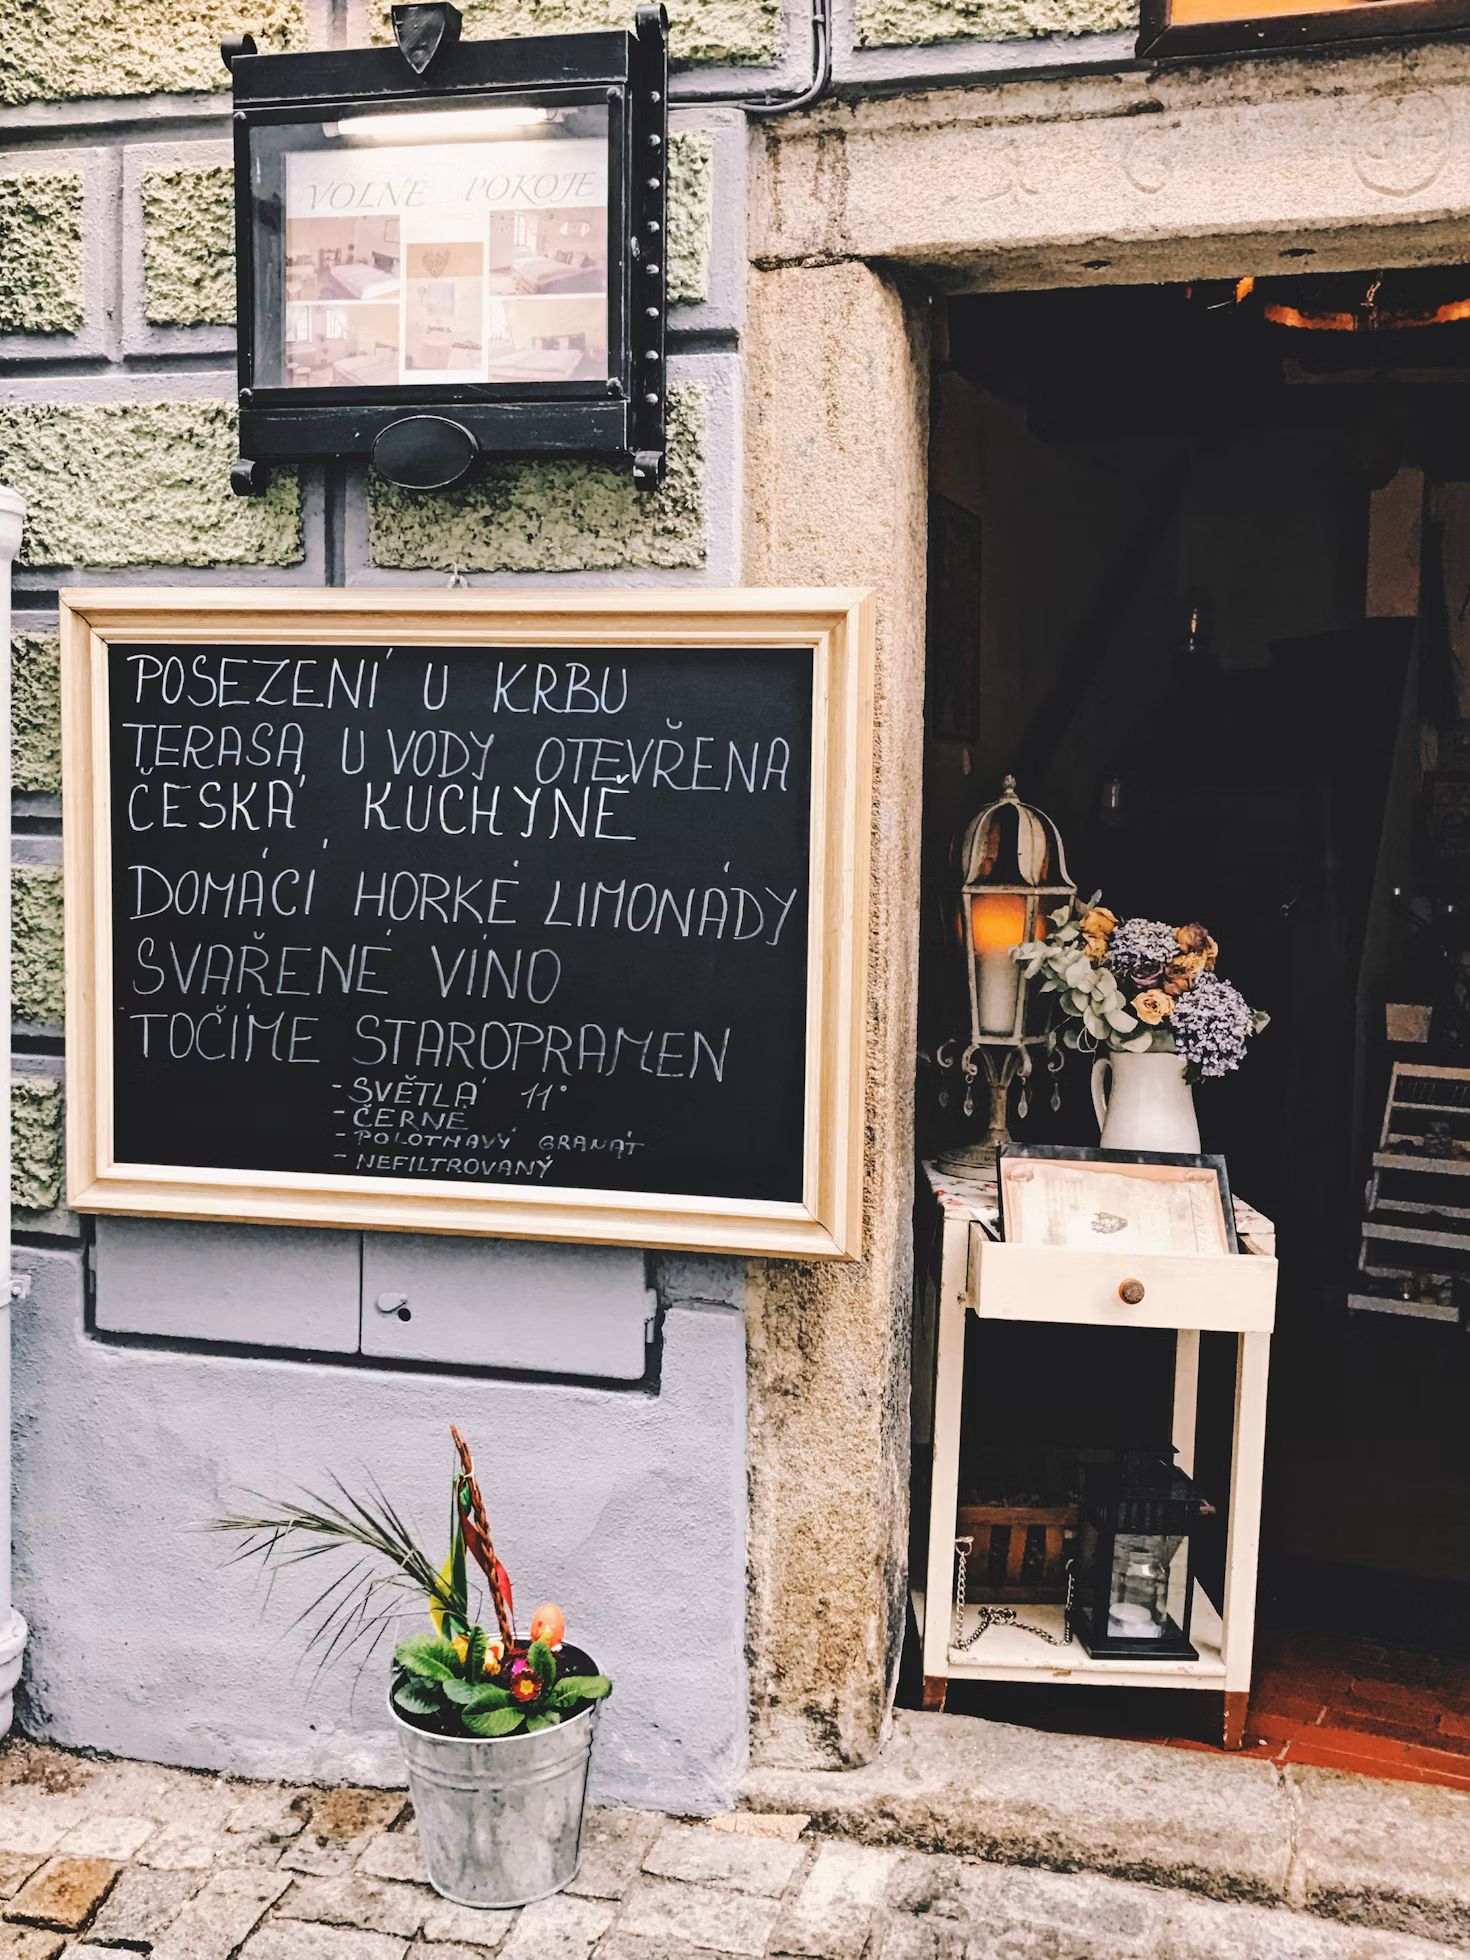 VOLNE POKOJE
POSEZENÍ U KRBU
TERASA U VODY OTEVŘENA
ČESKÁ KUCHYNĚ
DOMÁCÍ HORKÉ LIMONÁDY
SVAŘENÉ VÍNO
TOČÍME STAROPRAMEN
- SVĚTLÁ 11°
- ČERNÉ
- POLOTMAVÝ GRANÁT
- NEFILTROVANÝ